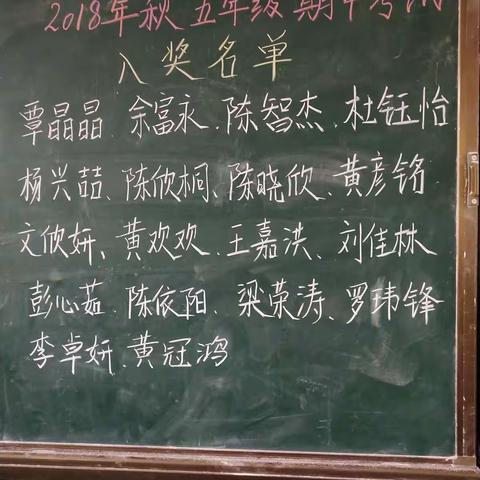 2018年秋五年级期中考试
入奖名单
覃晶晶、余富永、陈智杰、杜钰怡
杨兴喆、陈欣桐、陈晓欣、黄彦铭
文欣妍、黄欢欢、王嘉洪、刘佳林
彭心茹、陈依阳、梁荣涛、罗玮锋
李卓妍、黄冠鸿